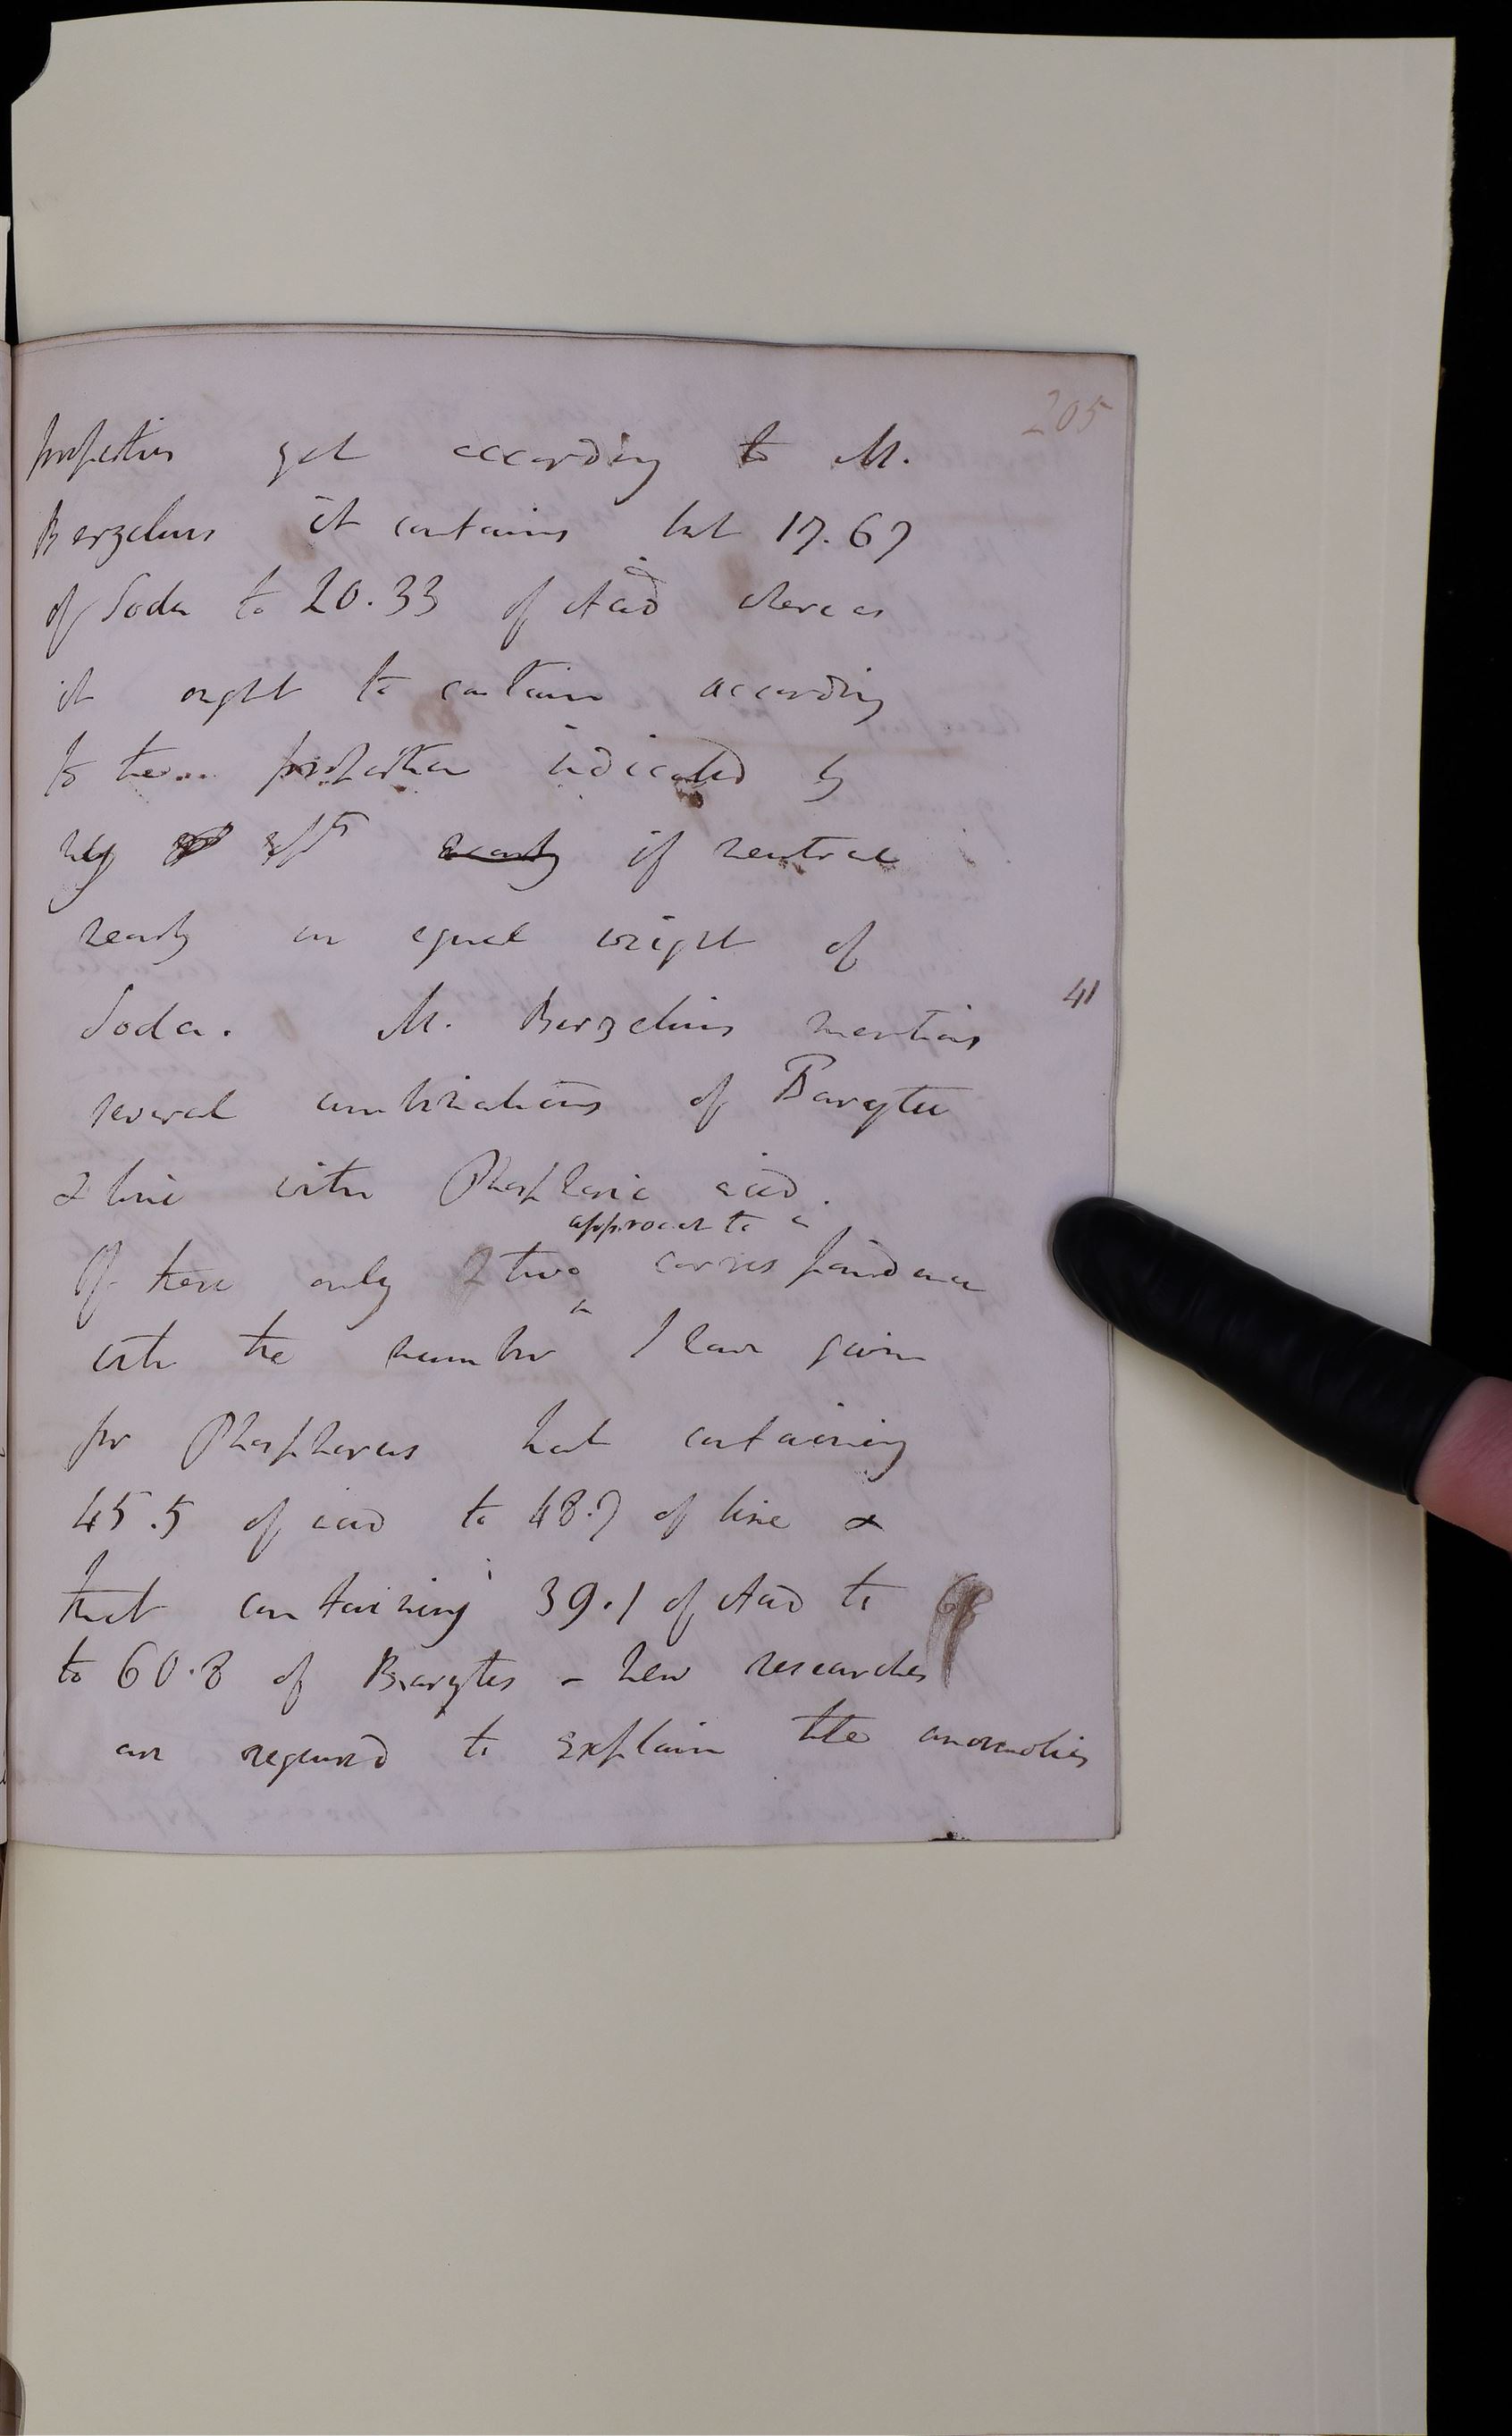 205
properties yet according to M.
Berzelius it contains but 17.67
of Soda to 20.33 of Acid whereas
it ought to contain according
to the proportion indicated by
my expts nearly if neutral
nearly an equal weight of
Soda. M. Berzelius mentions
41
several combinations of Barytes
& lime with Phosphoric acid.
approach to a
Of these only two correspondence
with the number I have given
for Phosphorus that containing
45.5 of acid to 48.7 of lime &
that containing 39.1 of Acid to
to 60.8 of Barytes - New researches
are required to explain the anomalies